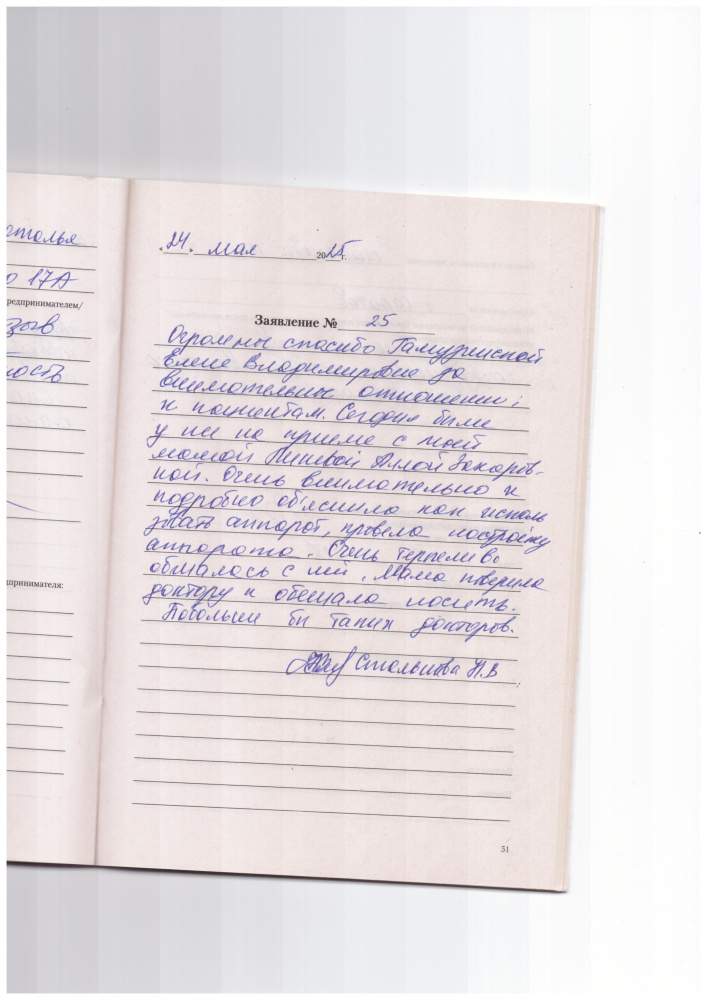 аталья
17А
редпринимателем/
зыв
ность
дпринимателя:
„24" мая 2025г.
Заявление № 25
Огромены спасибо Гамузинской
Елене Владимировне за
внимательные отношении
к пациентам. Сегодня были
у неё на приеме с моей
мамой Аллой Захаров-
ной. Очень внимательно и
подробно обяснила как исполь
зовать аппарат, провела настройку
аппарата. Очень терпеливо
общалась с ней. Мама поверила
доктору и обещала носить.
Побольше бы таких докторов.
Стольникова Н.В
51